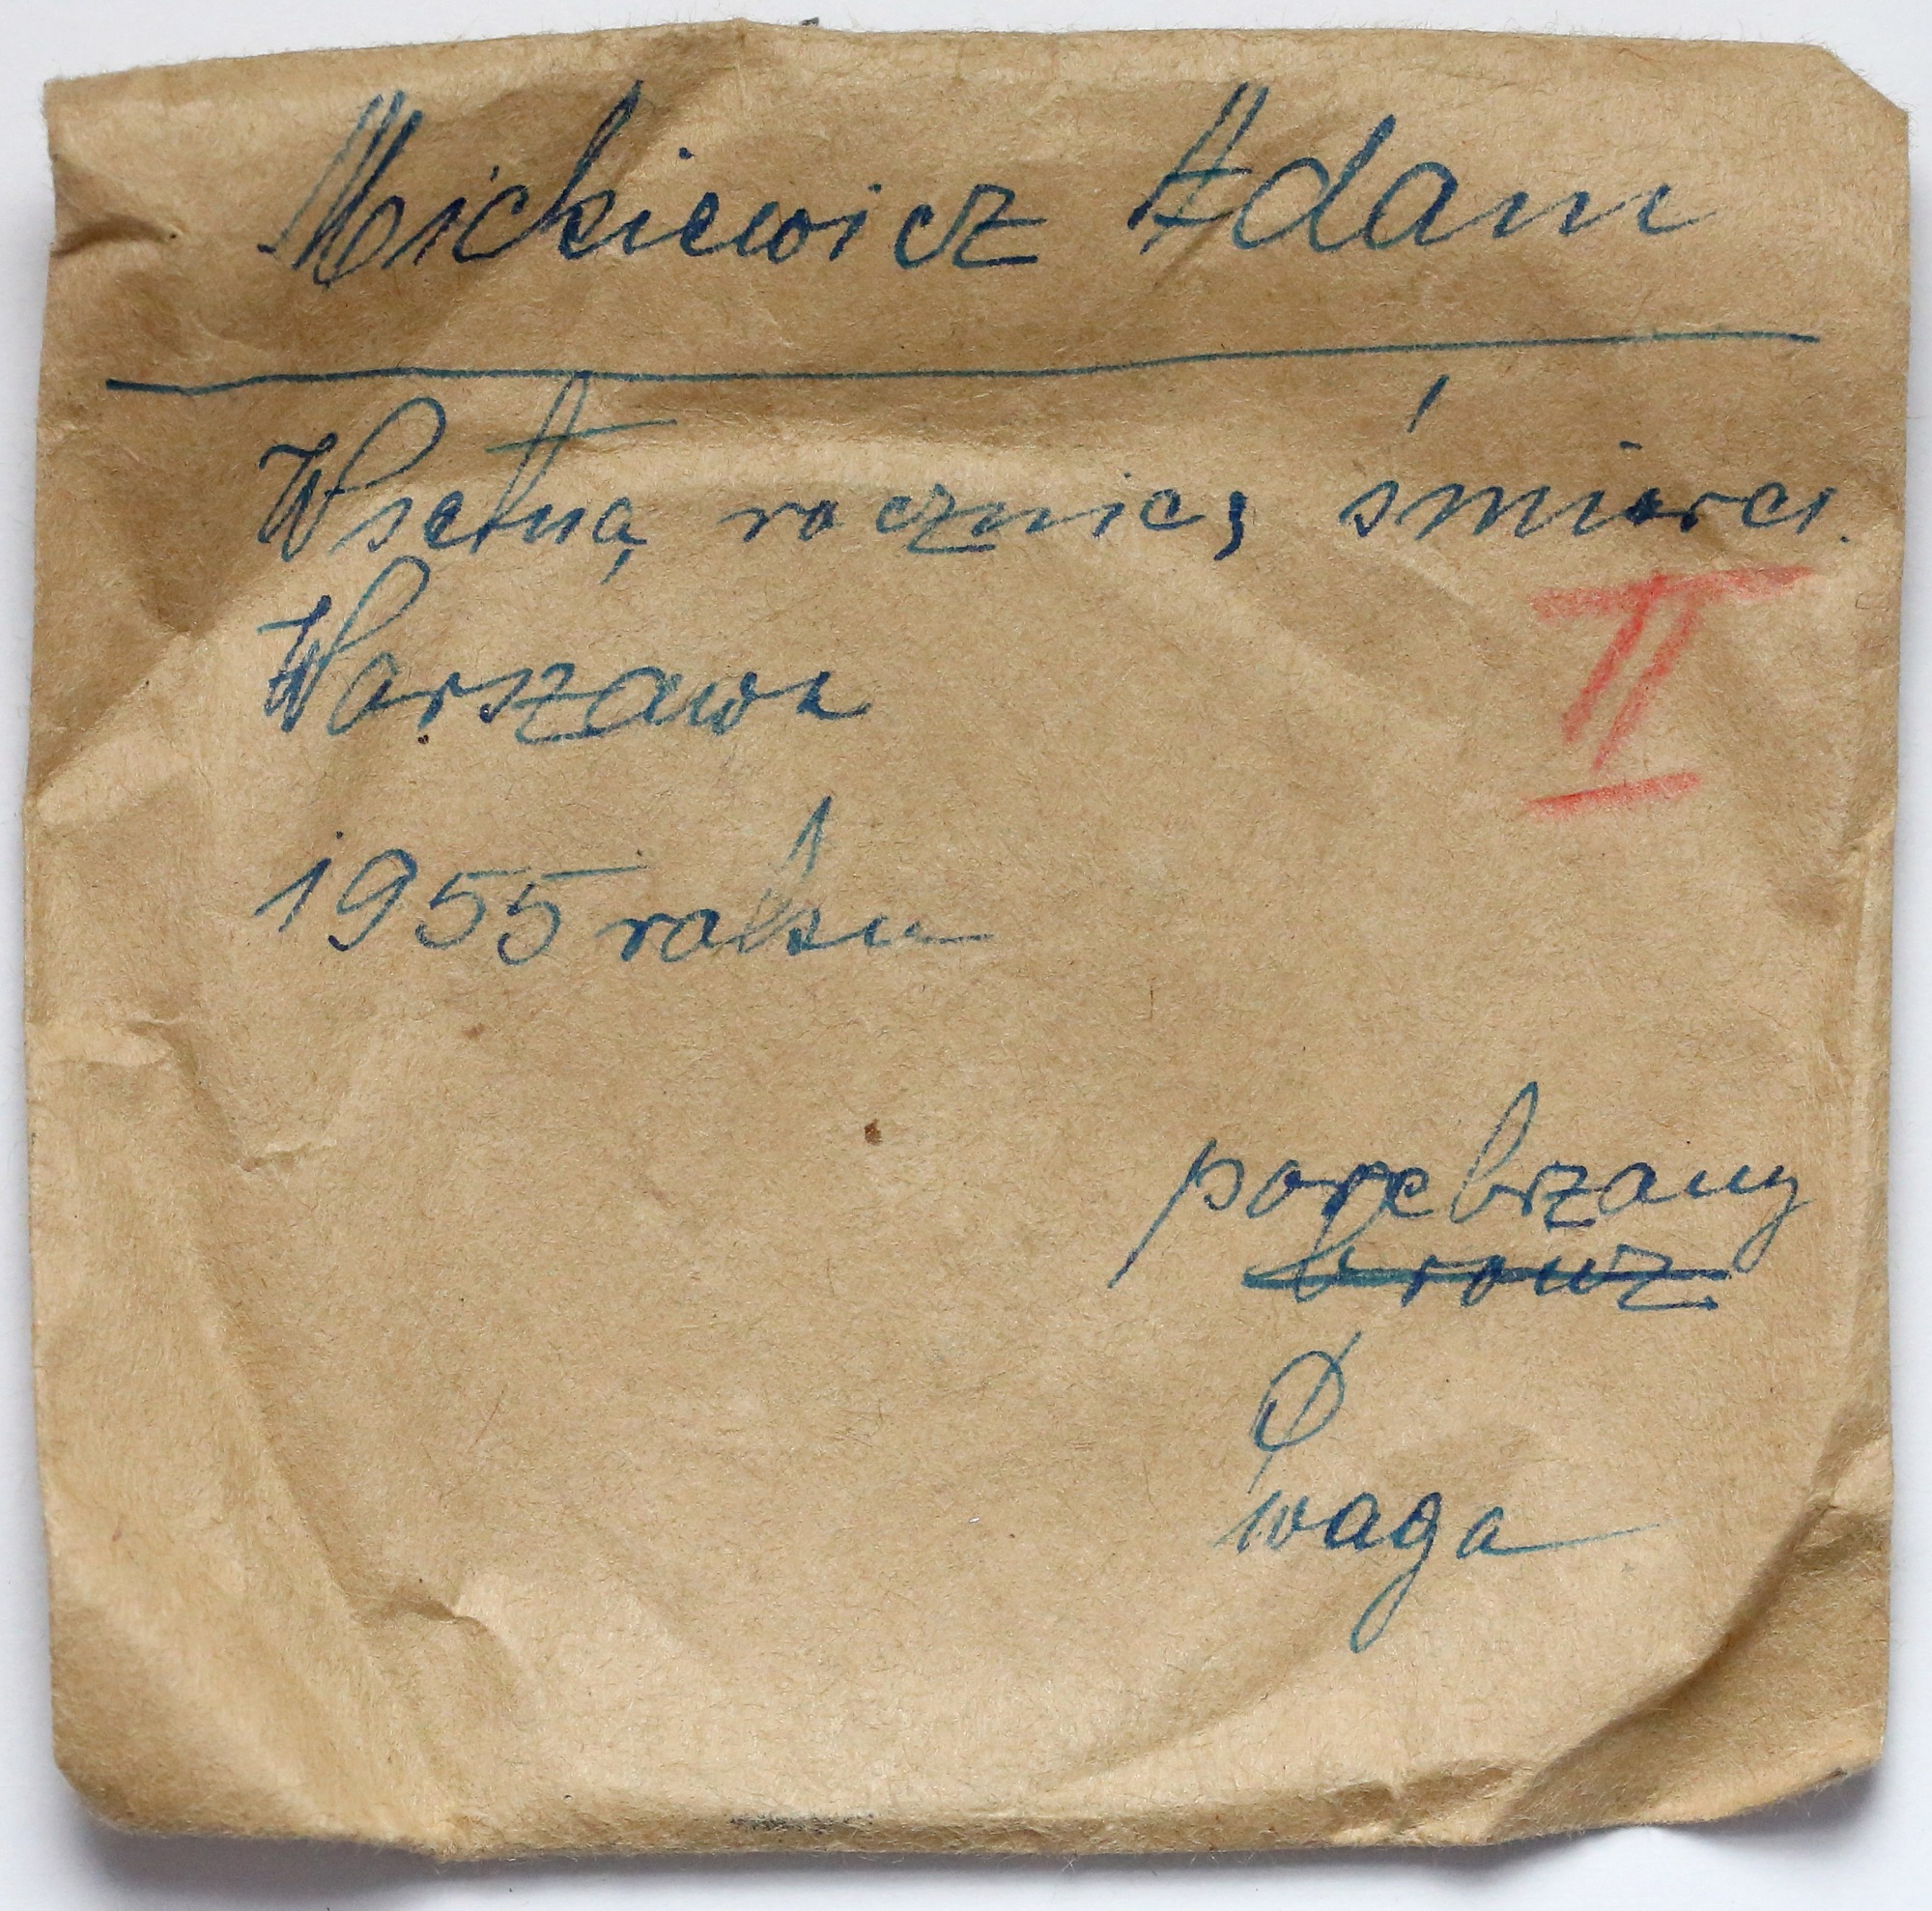 Mickiewicz Adam
W setną rocznicę śmierci.
Warszawa
II
1955 roku
posrebrzany
bronz
Ø
waga